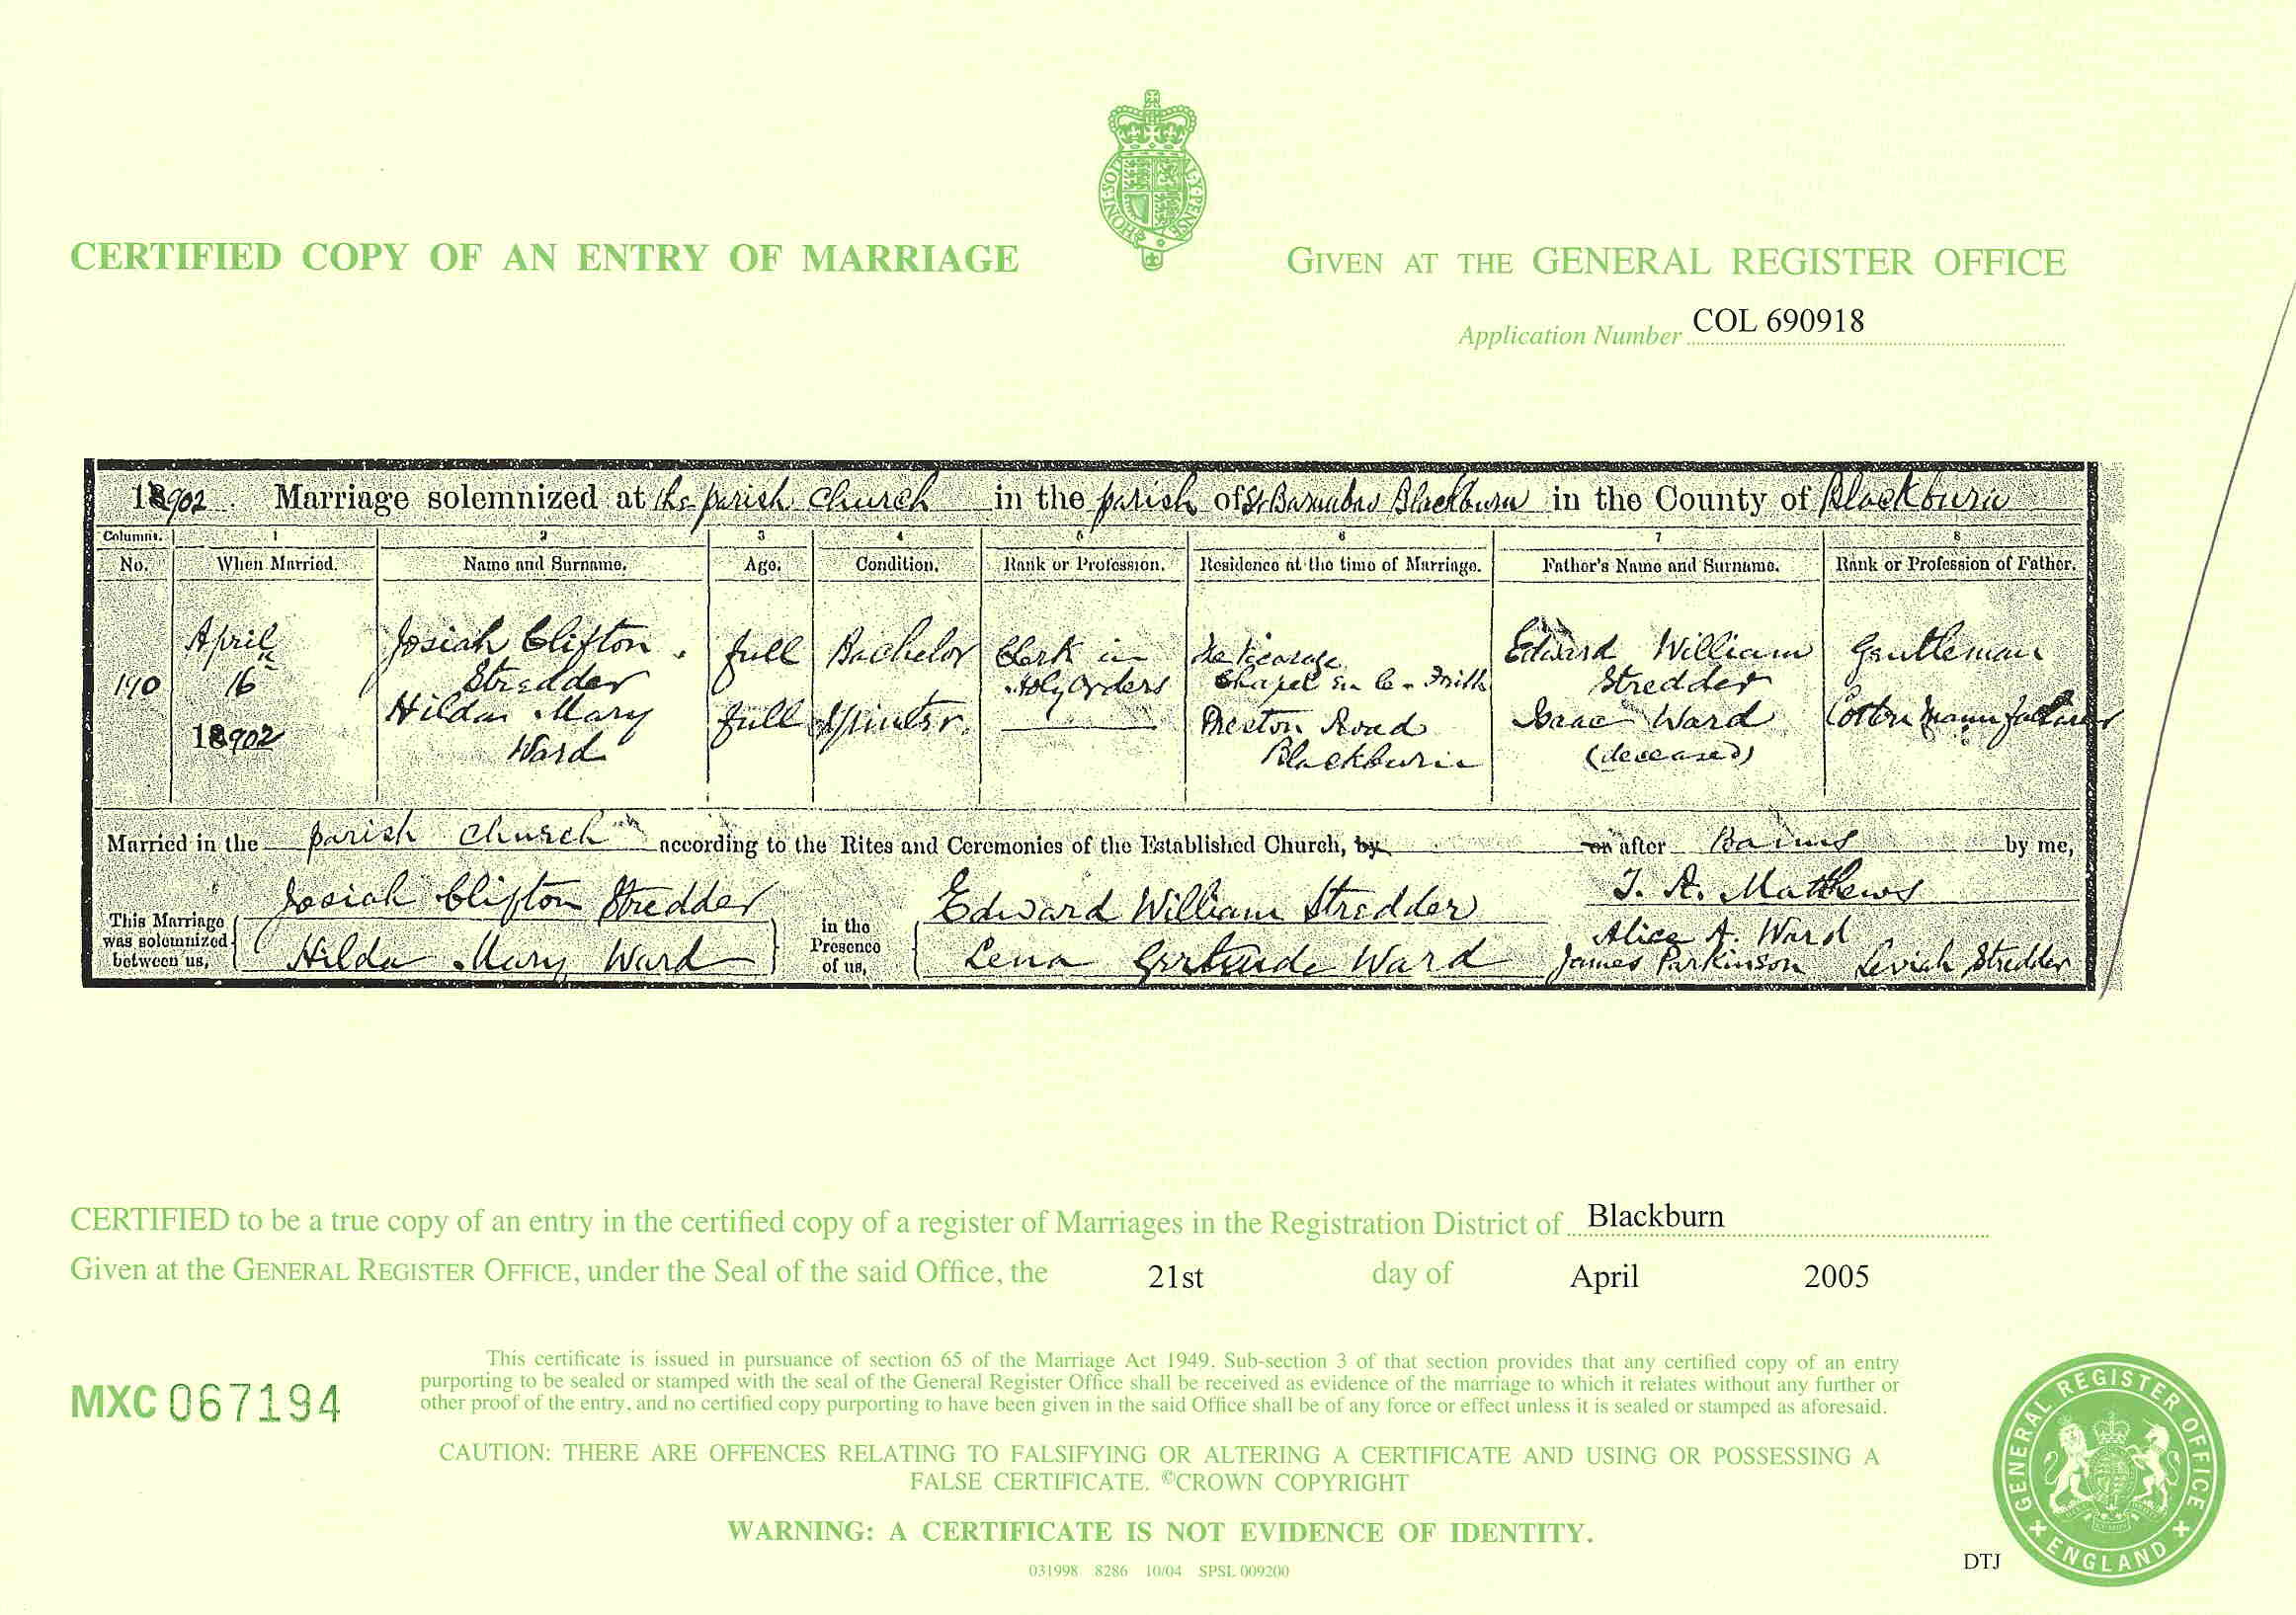 HONI·SOIT
AL·Y·PENSE
CERTIFIED COPY OF AN ENTRY OF MARRIAGE
GIVEN AT THE GENERAL REGISTER OFFICE
Application Number COL 690918
18902. Marriage solemnized at the parish church in the parish of St Barnabas Blackburn in the County of Blackburn
Columns. 1 2 3 4 5 6 7 8
No. When Married. Name and Surname. Age. Condition. Rank or Profession. Residence at the time of Marriage. Father's Name and Surname. Rank or Profession of Father.
April Josiah Clifton full Bachelor Clerk in The Vicarage Edward William Gentleman
190 16th Stredder Holy Orders Chapel en le Frith Stredder
18902 Hilda Mary full Spinster Preston Road Isaac Ward Cotton Manufacturer
Ward Blackburn (deceased)
Married in the parish church according to the Rites and Ceremonies of the Established Church, by on after Banns by me,
T. A. Mathews
This Marriage was solemnized between us, Josiah Clifton Stredder
Hilda Mary Ward
in the Presence of us, Edward William Stredder
Lena Gertrude Ward
Alice A. Ward
James Parkinson Stredder
CERTIFIED to be a true copy of an entry in the certified copy of a register of Marriages in the Registration District of Blackburn
Given at the GENERAL REGISTER OFFICE, under the Seal of the said Office, the 21st day of April 2005
This certificate is issued in pursuance of section 65 of the Marriage Act 1949. Sub-section 3 of that section provides that any certified copy of an entry
purporting to be sealed or stamped with the seal of the General Register Office shall be received as evidence of the marriage to which it relates without any further or
other proof of the entry, and no certified copy purporting to have been given in the said Office shall be of any force or effect unless it is sealed or stamped as aforesaid.
MXC 067194
CAUTION: THERE ARE OFFENCES RELATING TO FALSIFYING OR ALTERING A CERTIFICATE AND USING OR POSSESSING A
FALSE CERTIFICATE. ©CROWN COPYRIGHT
WARNING: A CERTIFICATE IS NOT EVIDENCE OF IDENTITY.
031998 8286 10/04 SPSL 009200
DTJ
GENERAL REGISTER OFFICE
ENGLAND